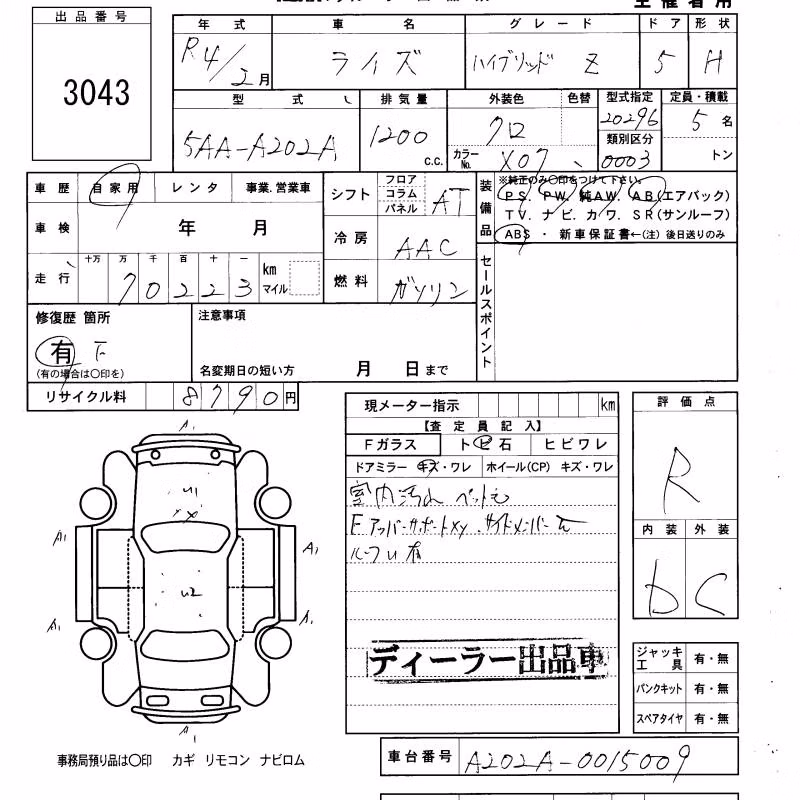 主催者用
出品番号
3043
年式 車名 グレード ドア 形状
R4/2月 ライズ ハイブリッド Z 5 H
型式 排気量 外装色 色替 型式指定 定員・積載
5AA-A202A 1200 c.c. クロ 20296 5名
カラーNo. X07 類別区分 0003 トン
車歴 自家用 レンタ 事業.営業車
車検 年 月
走行 十万 万 千 百 十 一 km マイル
70223
シフト フロア コラム パネル AT
冷房 AAC
燃料 ガソリン
装備品 ※純正のみ〇印をつけて下さい。
PS. PW. 純AW. AB(エアバック)
TV. ナビ. カワ. SR(サンルーフ)
ABS ・ 新車保証書←(注) 後日送りのみ
セールスポイント
修復歴 箇所
有
(有の場合は〇印を)
注意事項
名変期日の短い方 月 日まで
リサイクル料 8790円
現メーター指示 km
【査定員記入】
Fガラス トビ石 ヒビワレ
ドアミラー キズ・ワレ ホイール(CP) キズ・ワレ
室内汚れ ペット毛
Fアッパーサポートxy.サイドメンバー
ルーフU有
ディーラー出品車
評価点
R
内装 外装
D C
ジャッキ工具 有・無
パンクキット 有・無
スペアタイヤ 有・無
A1
U1
X
A1 A1
U2
A1 A1
A1
事務局預り品は〇印 カギ リモコン ナビロム
車台番号 A202A-0015009